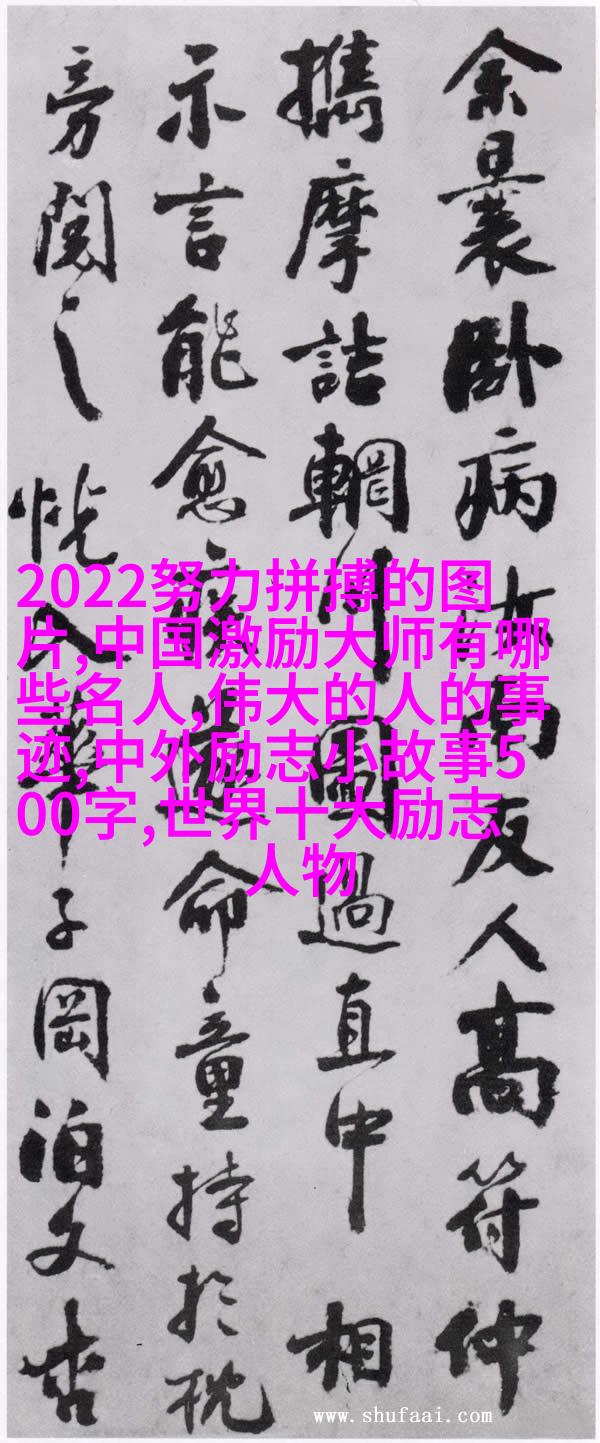 余曩卧病汝南友人高符仲
攜摩詰輞川圖過直中相
示言能愈疾遂命童持於枕
旁閱之恍入華子岡泊文杏
2022努力拼搏的图
片,中国激励大师有哪
些名人,伟大的人的事
迹,中外励志小故事5
00字,世界十大励志
人物
www.shufaai.com